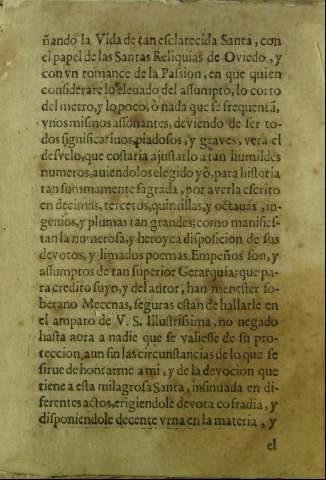 ñando la Vida de tan esclarecida Santa, con
el papel de las Santas Reliquias de Oviedo, y
con vn romance de la Passion, en que quien
considerare lo eleuado del assumpto, lo corto
del metro, y lo poco, ò nada que se frequentā,
vnos mismos assonantes, deviendo de ser to-
dos significatiuos, piadosos, y graves, verà el
desvelo, que costaria ajustarlo a tan humildes
numeros, auiendolos elegido yò, para historia
tan summamente sagrada, por averla escrito
en decimas, tercetos, quintillas, y octauas, in-
genios, y plumas tan grandes: como manifies-
tan la numerosa, y heroyca disposicion de sus
devotos, y limados poemas. Empeños son, y
assumptos de tan superior Gerarquia; que pa-
ra credito suyo, y del autor, han menester so-
berano Mecenas, seguras estàn de hallarle en
el amparo de V. S. Illustrissima, no negado
hasta aora a nadie que se valiesse de su pro-
teccion, aun sin las circunstancias de lo que se
sirue de honrarme a mi, y de la devocion que
tiene a esta milagrosa Santa, insinuada en di-
ferentes actos, erigiendole devota cofradia, y
disponiendole decente vrna en la materia, y
el